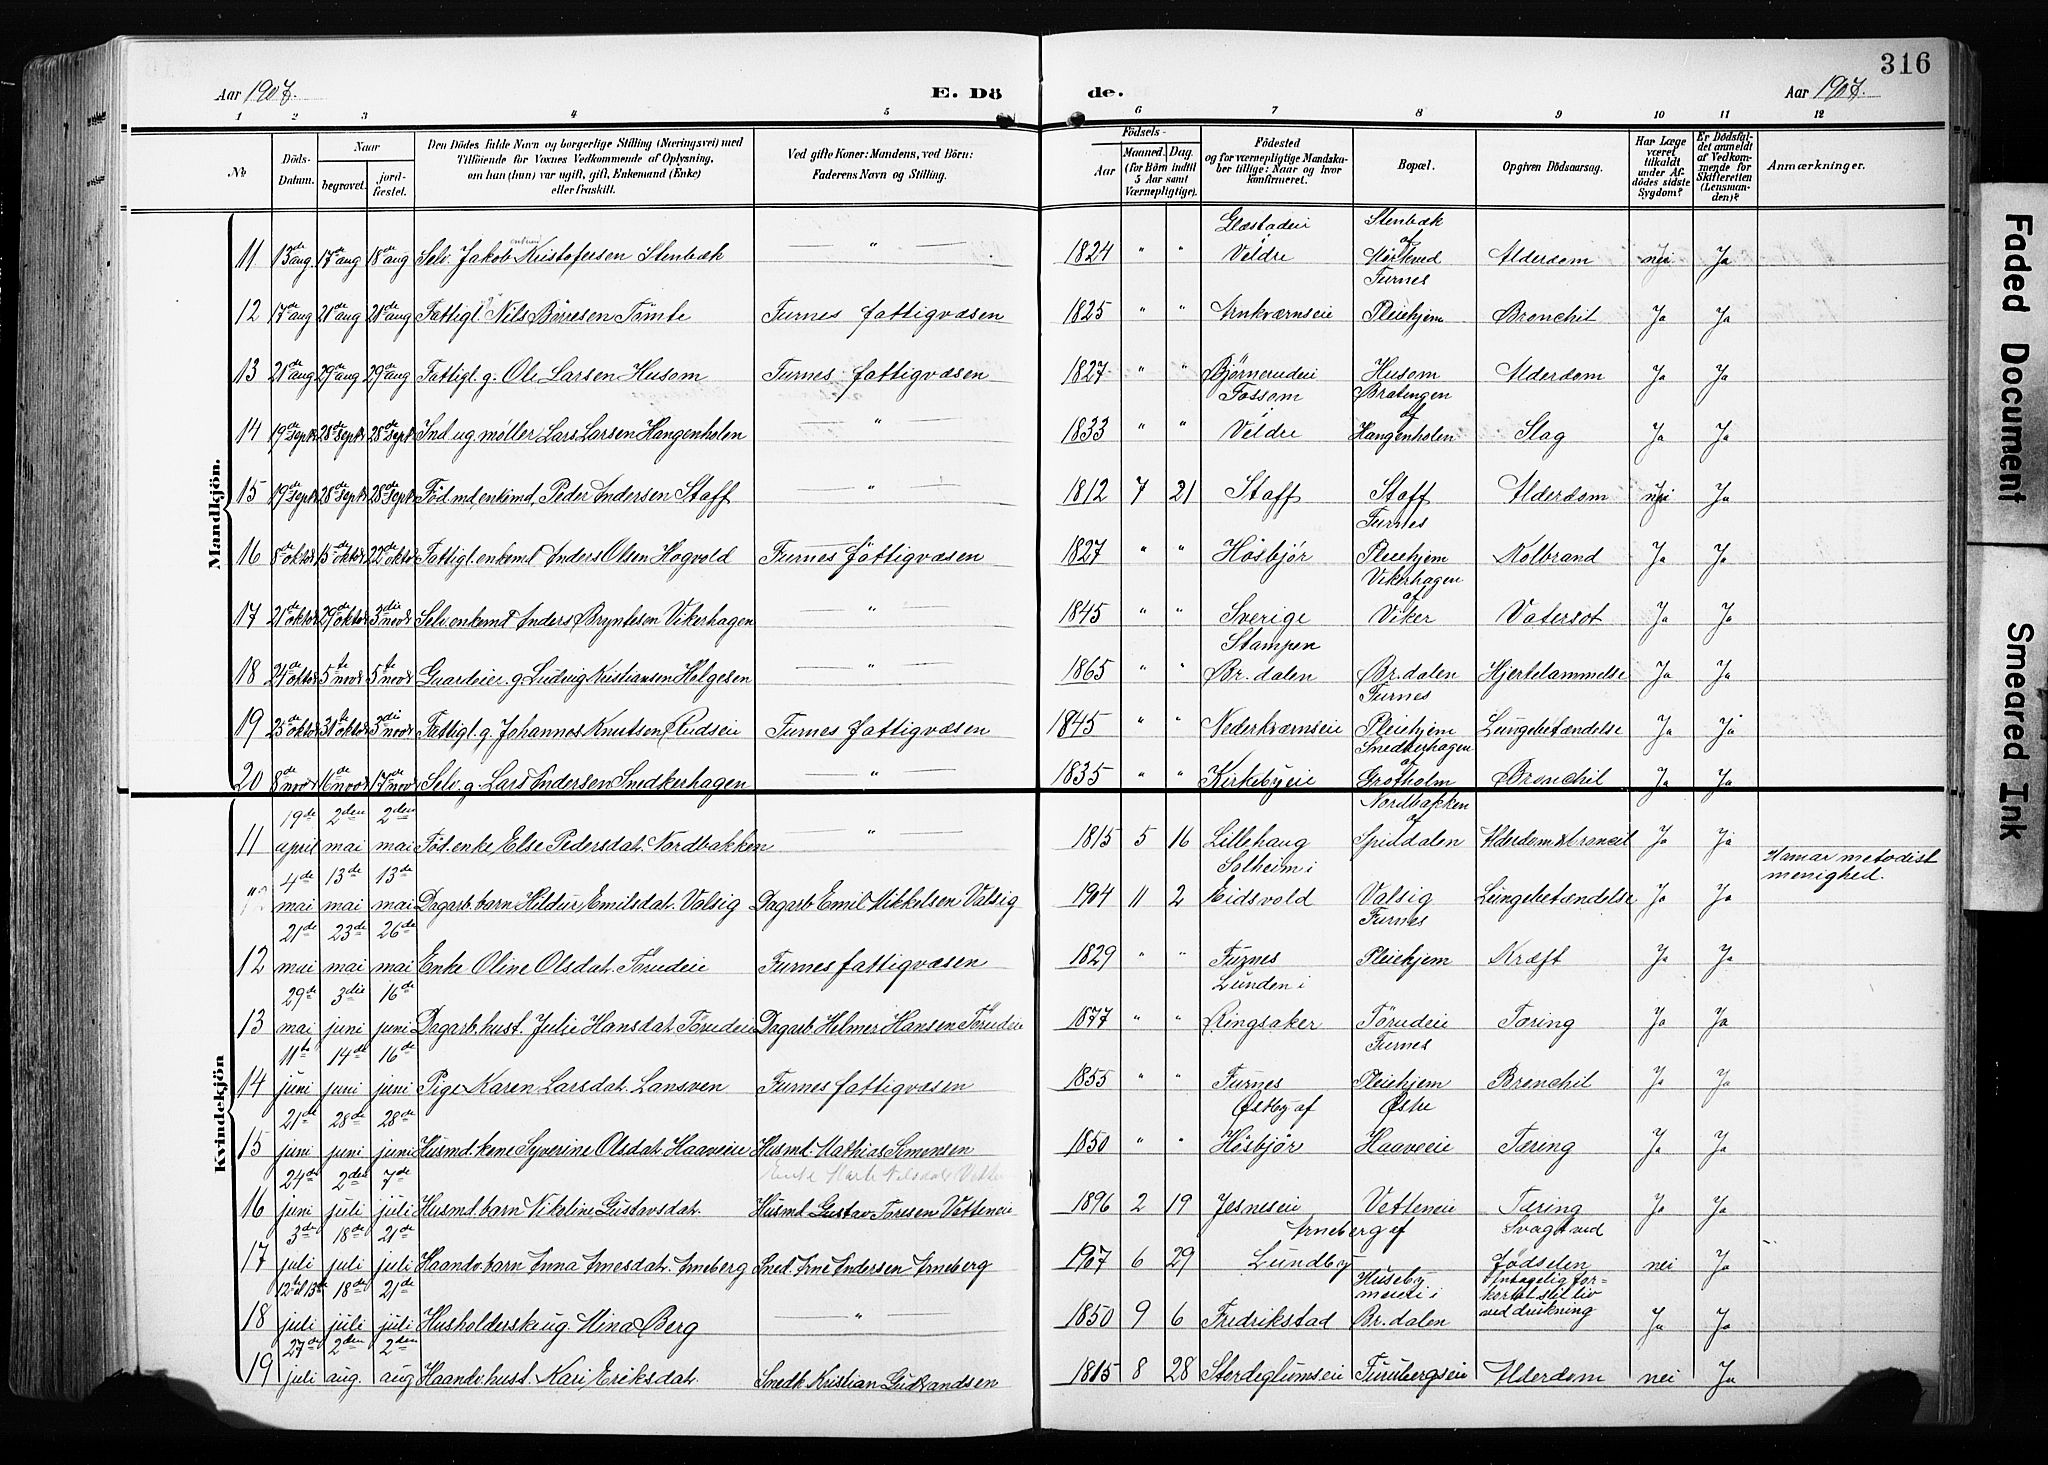 316
Aar 1907.
E. Dö
de.
Aar 1907.
1 2 3 4 5 6 7 8 9 10 11 12
No
Döds-Datum.
Naar
begravet.
jord-fæstet.
Den Dödes fulde Navn og borgerlige Stilling (Næringsvei) med Tilföiende for Voxnes Vedkommende af Oplysning, om han (hun) var ugift, gift, Enkemand (Enke) eller fraskilt.
Ved gifte Koner: Mandens, ved Börn: Faderens Navn og Stilling.
Födsels-
Aar
Maaned. Dag.
(for Börn indtil 5 Aar samt Værnepligtige).
Födested og for værnepligtige Mandskaber tillige: Naar og hvor konfirmeret.
Bopæl.
Opgiven Dödsaarsag.
Har Læge været tilkaldt under Afdödes sidste Sygdom?
Er Dödsfaldet anmeldt af Vedkommende for Skifteretten (Lensmanden)?
Anmærkninger.
Mandkjön.
11 13de aug. 17de aug 18de aug Selv. Jakob Kristofersen Stenbæk — " — 1824 " " Glæstadeie i Veldre Stenbæk af Mörkved Alderdom nei Ja
12 17de aug 21de aug 21de aug Fattigl. Nils Börresen Tömte Furnes fattigvæsen 1825 " " Arnkværnseie Furnes Pleiehjem Bronchit Ja Ja
13 21de aug 29de aug 29de aug Fattigl. g. Ole Larsen Husom Furnes fattigvæsen 1827 " " Björnerudeie Husom Alderdom Ja Ja
14 19de septr 28de septr 28de septr Ind. ug møller Lars Larsen Hangenholen — " — 1833 " " Fossom i Veldre Bratengen af Hangenholen Slag Ja Ja
15 19de septr 28de septr 28de septr Föd.md. enkemd. Peder Andersen Staff — " — 1812 7 21 Staff Staff Alderdom nei Ja
16 8de oktor 15de oktor 22de oktor Fattigl. enkemd Anders Olsen Hogvold Furnes fattigvæsen 1827 " " Hösbjör Furnes Pleiehjem Kolbrand Ja Ja
17 21de oktor 29de oktor 3die novr Selv. enkemd Anders Bryntesen Vikerhagen — " — 1845 " " Sverige Vikerhagen af Viker Vatersot Ja Ja
18 24de oktor 5te novr 5te novr Gaardeier. g. Ludvig Kristiansen Helgesen — " — 1865 " " Stampen Br. dalen Br. dalen Hjertelammelse Ja Ja
19 25de oktor 31te oktor 3die novr Fattigl. g. Johannes Knutsen Rudseie Furnes fattigvæsen 1845 " " Nederkværnseie Furnes Pleiehjem Lungebetændelse Ja Ja
20 8de novr 16de novr 17de novr Selv. g. Lars Andersen Snedkerhagen — " — 1835 " " Kirkebyeie Snedkerhagen af Grotholm Bronchit Ja Ja
Kvindekjön
11 19de april 2den mai 2den mai Föd. enke Else Pedersdat. Nordbakken — " — 1815 5 16 Lillehaug Nordbakken af Spiddalen Alderdom & broncit Ja Ja
4de mai 13de mai 13de mai Dagarb. barn Hildur Emilsdat. Valsig Dagarb. Emil Mikkelsen Valsig 1904 11 2 Solheim i Eidsvold Valsig Lungebetændelse Ja Ja Hamar metodist menighed.
12 21de mai 23de mai 26de mai Enke Oline Olsdat. Törudeie Furnes fattigvæsen 1829 " " Furnes Furnes Pleiehjem Kræft Ja Ja
13 29de mai 3die juni 16de juni Dagarb. hust. Julie Hansdat. Törudeie Dagarb. Helmer Hansen Törudeie 1877 " " Lunden i Ringsaker Törudeie Tæring Ja Ja
14 11te juni 14de juni 16de juni Pige Karen Larsdat. Lansven Furnes fattigvæsen 1855 " " Furnes Furnes Pleiehjem Bronchit Ja Ja
15 21de juni 28de juni 28de juni Husmd. kone Syverine Olsdat. Haaveie Husmd. Mathias Simensen 1850 " " Østby af Hösbjör Østre Haaveie Tæring Ja Ja
16 24de juni 2den juli 7de juli Husmd. barn Nikoline Gustavsdat. Husmd. Gustav Toresen Vetteneie 1896 2 19 Jesneseie Vetteneie Tæring Ja Ja
17 3de juli 18de juli 21de juli Haandv. barn Anna Arnesdat. Arneberg Smed. Arne Andersen Arneberg 1907 6 29 Arneberg af Lundby Svagt ved Födselen nei Ja
18 12te el 13de juli 18de juli 21de juli Husholderske ug. Mina Berg — " — 1850 9 6 Fredrikstad Huseby meieri i Br. dalen Antagelig forkortet sit liv ved drukning Ja Ja
19 27de juli 2den aug. 2den aug Haandv. hust. Kari Eriksdat. Smedk. Kristian Gudbrandsen 1815 8 28 Stordeglumseie Furubergseie Alderdom nei Ja
Faded Document
Smeared Ink